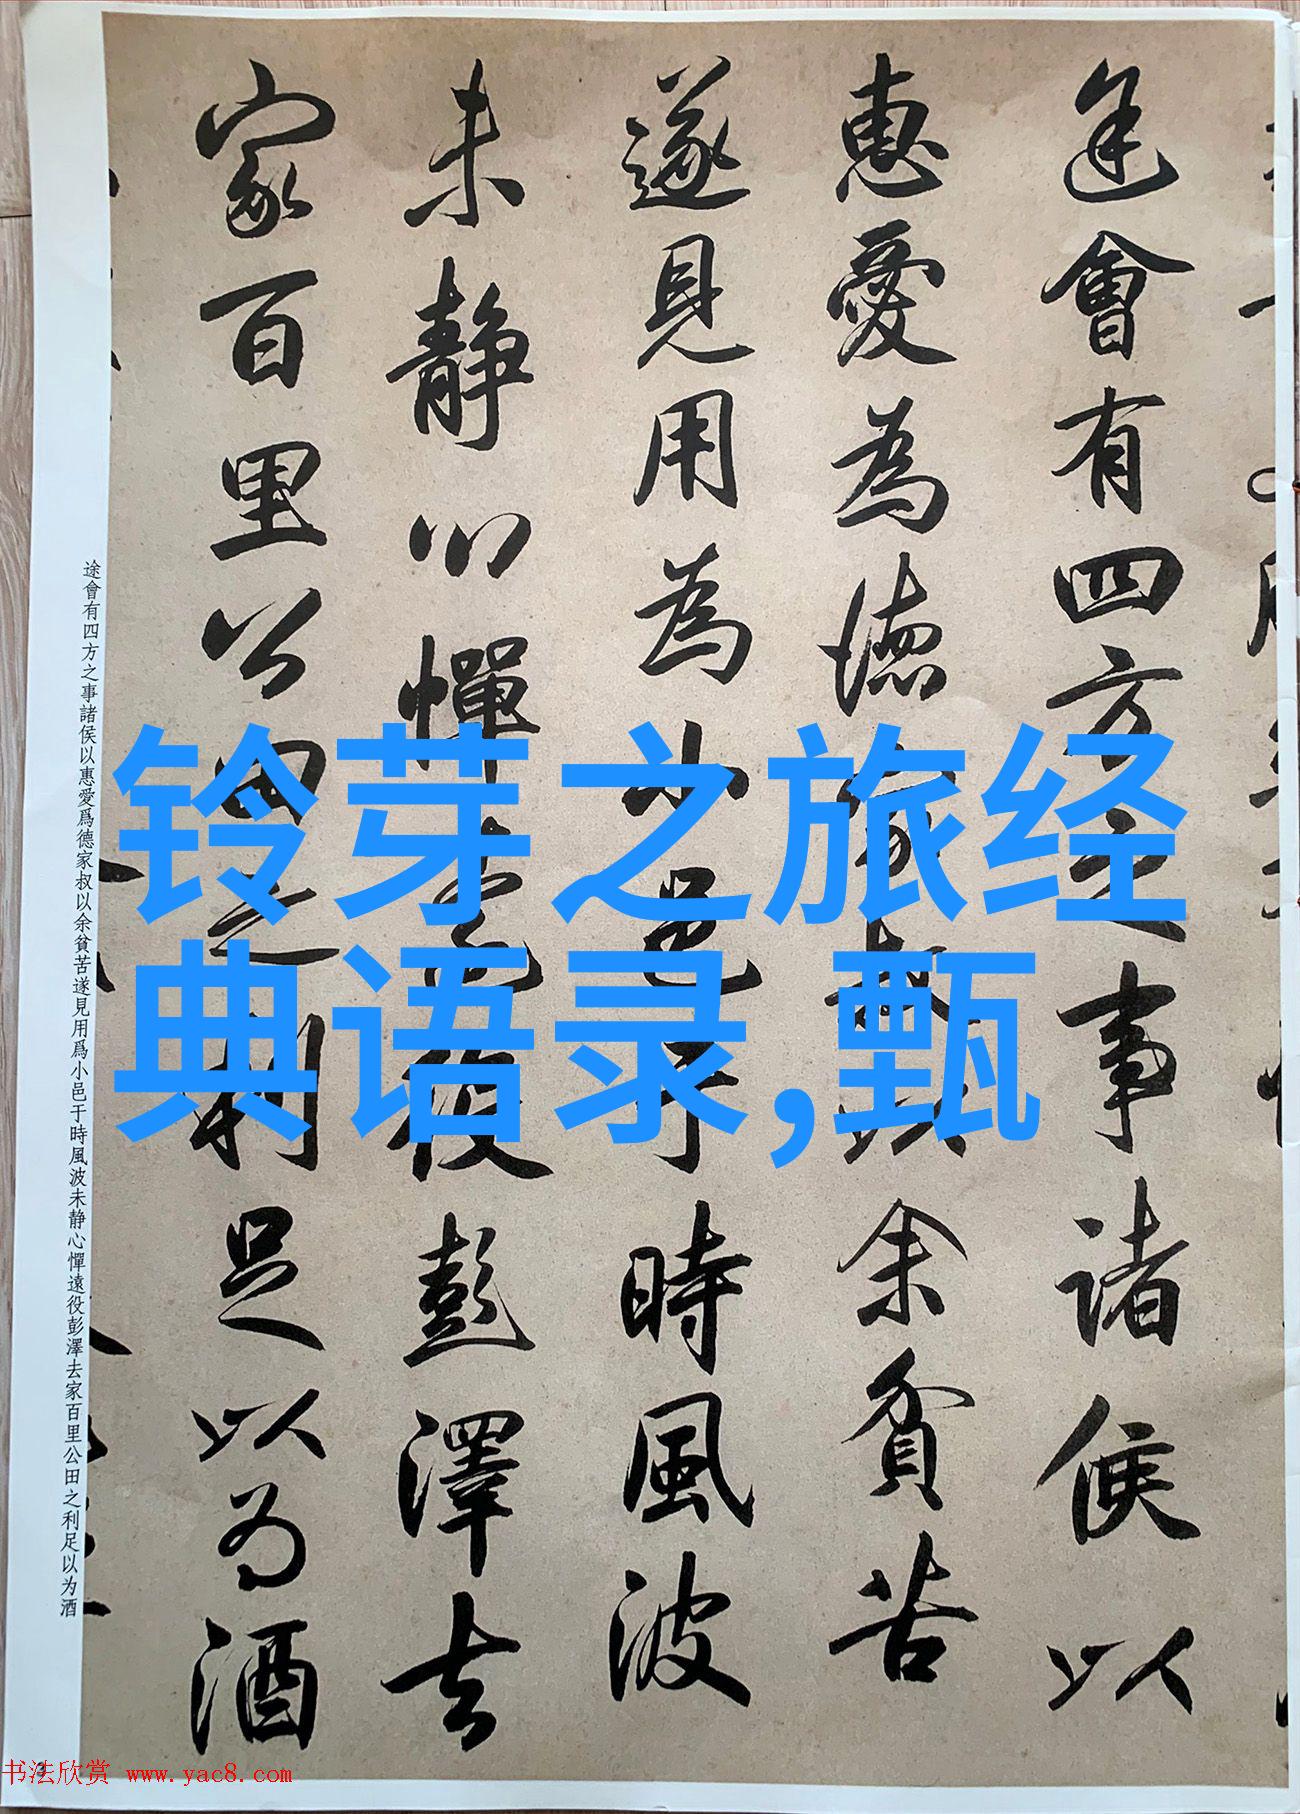 途會有四方之事諸侯以
惠愛為德家叔以余貧苦
遂見用為小邑于時風波
未静心憚遠役彭澤去
家百里公田之利足以为酒
途會有四方之事諸侯以惠愛爲德家叔以余貧苦遂見用爲小邑于時風波未静心憚遠役彭澤去家百里公田之利足以为酒
铃芽之旅经
典语录,甄
书法欣赏 www.yac8.com